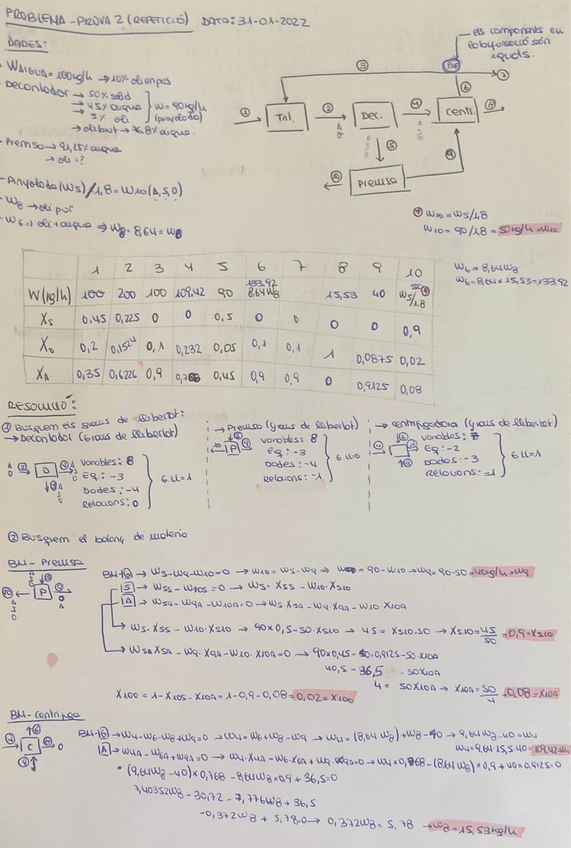 PROBLEMA - PROVA 2 (REPETICIÓ) DATA: 31-01-2022
DADES:
els components en
la bifurcació són
iguals.
· WAIGUA = 100 kg/h → 10% oli en pes
· Decantador → 50% sòlid
→ 45% aigua
→ 5% oli
W = 90 kg/h
(pinyolada)
→ oli brut → 76.8% aigua.
· Premsa → 91,25% aigua
→ oli = ?
- Pinyolada (W5) / 1,8 = W10 (A, S, O)
- W8 → oli pur
- W6 → oli + aigua ⇒ W8 · 8,64 = W6
① ② ③ ④ ⑤ ⑥ ⑦ ⑧ ⑨ ⑩
Tnl. Dec. Centr. Bif
Premsa
W10 = W5/1,8
W10 = 90/1,8 = 50 kg/h = W10
W6 = 8,64 W8
W6 = 8,64 × 15,53 = 133,92
1 2 3 4 5 6 7 8 9 10
W (kg/h) 100 200 100 109,42 90 133,92 8,64 W8 15,53 40 50 W5/1.8
XS 0,45 0,225 0 0 0,5 0 0 0 0 0,9
XO 0,2 0,1524 0,1 0,232 0,05 0,1 0,1 1 0,0875 0,02
XA 0,35 0,6226 0,9 0,768 0,45 0,9 0,9 0 0,9125 0,08
RESOLUCIÓ:
① Busquem els graus de llibertat:
→ Decantador (Graus de llibertat)
Variables: 8
Eq.: -3
Dades: -4
Relacions: 0
G.LL = 1
→ Premsa (graus de llibertat)
Variables: 8
Eq: -3
Dades: -4
Relacions: -1
G.LL = 0
→ centrifugadora (graus de llibertat)
Variables: 7
Eq: -2
Dades: -3
Relacions: -1
G.LL = 1
② Busquem el balanç de matèria
BM - Premsa
BM → G → W5 - W9 - W10 = 0 → W10 = W5 - W9 → W9 = 90 - W10 → W9 = 90 - 50 = 40 kg/h = W9
S → W5S - W10S = 0 → W5 · X5S - W10 · X10S
A → W5A - W9A - W10A = 0 → W5 X5A - W9 · X9A - W10 · X10A
→ W5 · X5S - W10 · X10S → 90 × 0,5 - 50 · X10S → 45 = X10S · 50 → X10S = 45/50 = 0,9 = X10S
→ W5A X5A - W9 · X9A - W10 · X10A = 0 → 90 × 0,45 - 40 · 0,9125 - 50 · X10A
40,5 - 36,5 - 50 X10A
4 = 50 X10A → X10A = 50/4 = 0,08 = X10A
X10O = 1 - X10S - X10A = 1 - 0,9 - 0,08 = 0,02 = X10O
BM - Centrífuga
BM → G → W4 - W6 - W8 + W9 = 0 → W4 = W6 + W8 - W9 → W4 = (8,64 W8) + W8 - 40 → 9,64 W8 - 40 = W4
W4 = 9,64 · 15,5 - 40 = 109,42 = W4
A → W4A - W6A + W9A = 0 → W4 · X4A - W6 · X6A + W9 · X9A = 0 → W4 × 0,768 - (8,64 W8) × 0,9 + 40 × 0,9125 = 0
· (9,64 W8 - 40) × 0,768 - 8,64 W8 × 0,9 + 36,5 = 0
7,40352 W8 - 30,72 - 7,776 W8 + 36,5
-0,372 W8 + 5,78 = 0 → 0,372 W8 = 5,78 → W8 = 15,53 kg/h